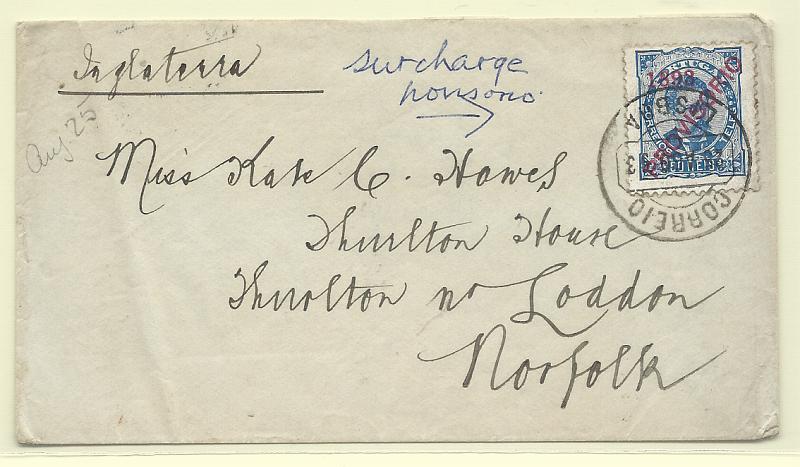 Inglaterra
surcharge
Aug. 25
Miss Kate C. Howes
Thurlton House
Thurolton nr Loddon
Norfolk
1893
PROVISORIO
CORREIO